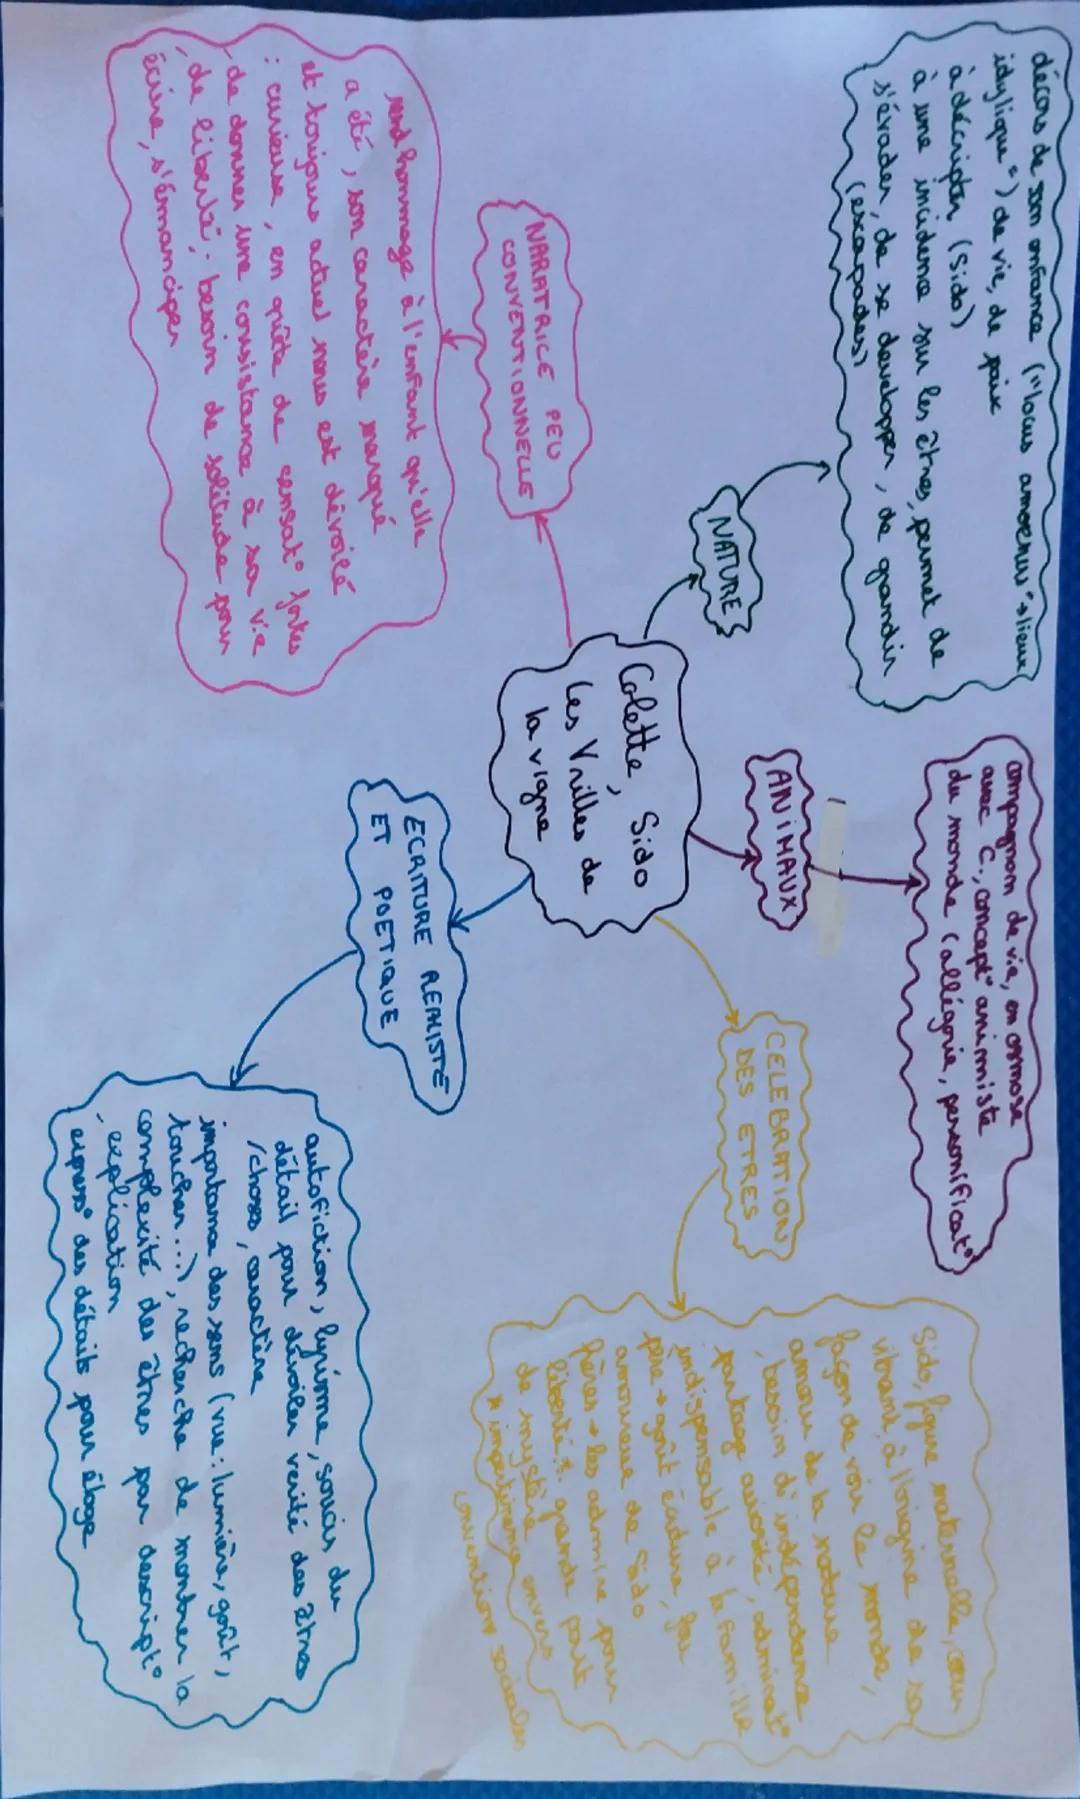 Colette, Sido
Les Vrilles de
la vigne
NATURE
décors de son enfance ("locus amoenus"→lieu
idylique") de vie, de paix
à décripter (Sido)
à une incidence sur les êtres, permet de
s'évader, de se developper, de grandir
(escapades)
ANIMAUX
compagnom de vie, en osmose
avec C., concept° animiste
du monde (allégorie, personificat°
CELEBRATION
DES ETRES
Sido, figure maternelle, cœur
vibrant, à l'origine de sa
façon de voir le monde,
amour de la nature
, besoin d'indépendance
partage curiosité, admirat°
indispensable à la famille
père → goût écriture, fou
amoureux de Sido
frères → les admire pour
liberté, grande part
de mystère envers
conventions sociales
NARATRICE PEU
CONVENTIONNELLE
rend hommage à l'enfant qu'elle
a été, son caractère marqué
et toujours actuel nous est dévoilé
: curieuse, en quête de sensat° fortes
, de donner une consistance à sa vie
, de liberté, besoin de solitude pour
écrire, s'émanciper
ECRITURE REALISTE
ET POETIQUE
autofiction, lyrisme, soucis du
détail pour dévoiler verité des êtres
/choses, caractère
importance des sens (vue: lumière, goût,
toucher...), recherche de montrer la
complexité des êtres par descript°
, explication
express° des détails pour éloge